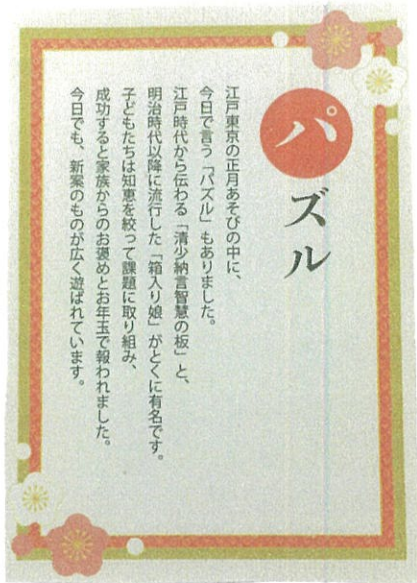 パズル
江戸東京の正月あそびの中に、
今日で言う「パズル」もありました。
江戸時代から伝わる「清少納言智慧の板」と、
明治時代以降に流行した「箱入り娘」がとくに有名です。
子どもたちは知恵を絞って課題に取り組み、
成功すると家族からのお褒めとお年玉で報われました。
今日でも、新案のものが広く遊ばれています。